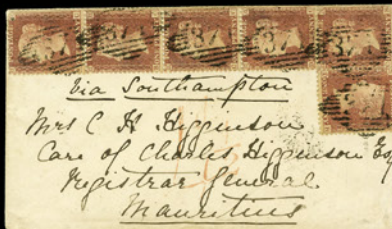 via Southampton
Mrs C H Higginson
Care of Charles Higginson Esq
Registrar General
Mauritius